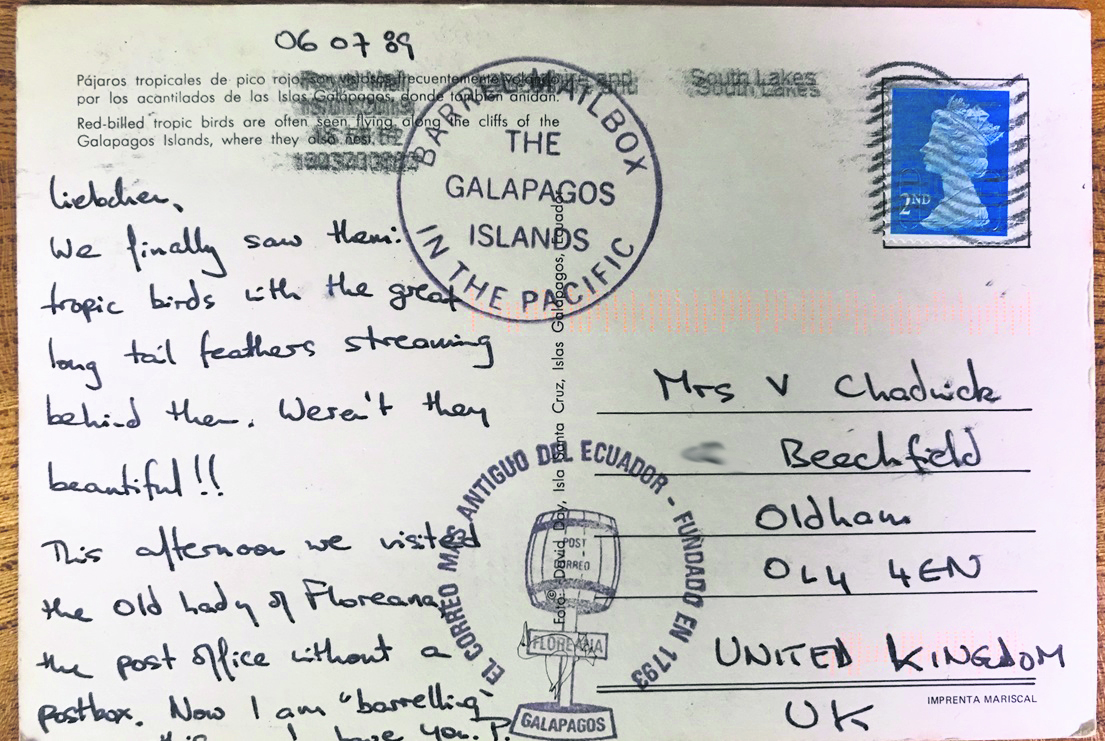 06 07 89
Pájaros tropicales de pico rojo, son vistosos frecuentemente volando
por los acantilados de las Islas Galápagos, donde también anidan.
Red-billed tropic birds are often seen flying along the cliffs of the
Galapagos Islands, where they also nest.
and South Lakes
South Lakes
BARREL MAILBOX
THE
GALAPAGOS
ISLANDS
IN THE PACIFIC
2ND
Liebchen,
We finally saw them:
tropic birds with the great
long tail feathers streaming
behind them. Weren't they
beautiful!!
This afternoon we visited
the Old Lady of Floreana,
the post office without a
postbox. Now I am "barrelling"
this I have you. P.
© Foto: David Day, Isla Santa Cruz, Islas Galápagos, Ecuador
EL CORREO MAS ANTIGUO DEL ECUADOR - FUNDADO EN 1793
POST
CORREO
FLOREANA
GALAPAGOS
Mrs V Chadwick
Beechfield
Oldham
OL4 4EN
UNITED KINGDOM
UK
IMPRENTA MARISCAL